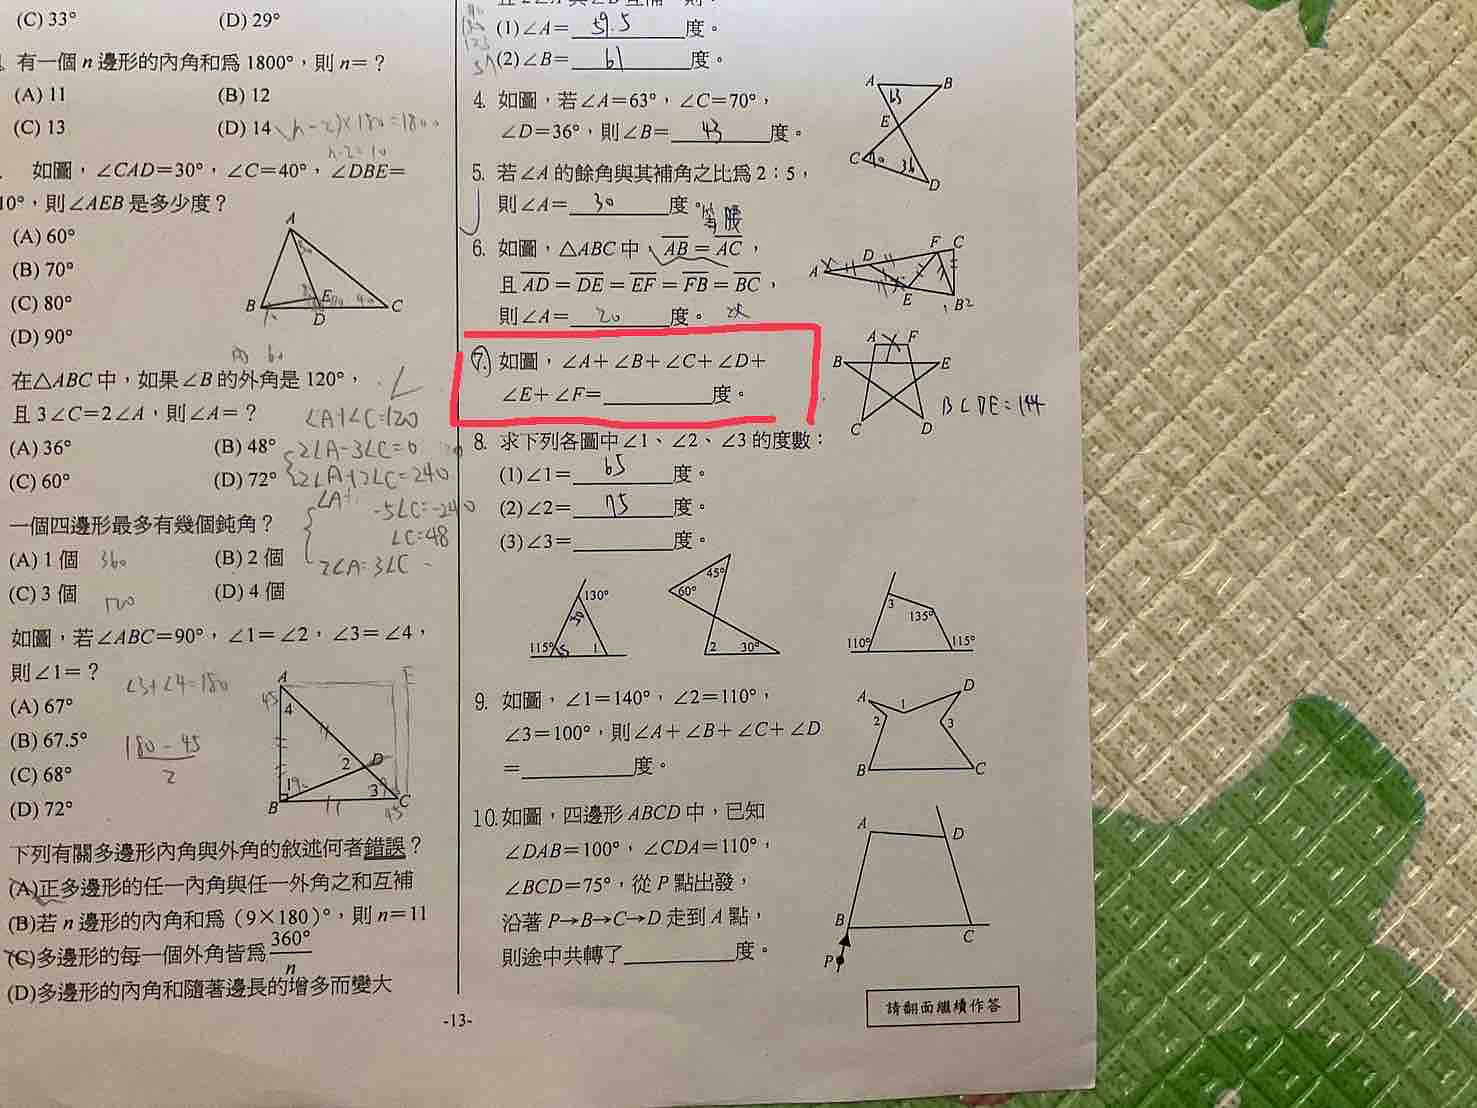 (C) 33° (D) 29°
有一個 n 邊形的內角和為 1800°，則 n=？
(A) 11 (B) 12
(C) 13 (D) 14
(n-2)×180=1800
n-2=10
如圖，∠CAD=30°，∠C=40°，∠DBE=
10°，則∠AEB 是多少度？
(A) 60°
(B) 70°
(C) 80°
(D) 90°
A
B
E
D
C
在△ABC 中，如果∠B 的外角是 120°，
且 3∠C=2∠A，則∠A=？
∠A+∠C=120
(A) 36° (B) 48°
2∠A-3∠C=0
(C) 60° (D) 72°
2∠A+2∠C=240
-5∠C=-240
∠C=48
2∠A=3∠C
一個四邊形最多有幾個鈍角？
(A) 1 個 (B) 2 個
360
(C) 3 個 (D) 4 個
如圖，若∠ABC=90°，∠1=∠2，∠3=∠4，
則∠1=？
∠3+∠4=180
(A) 67°
(B) 67.5°
180-45
2
(C) 68°
(D) 72°
A
E
45
4
2
D
1
3
B
C
45
下列有關多邊形內角與外角的敘述何者錯誤？
(A)正多邊形的任一內角與任一外角之和互補
(B)若 n 邊形的內角和為（9×180）°，則 n=11
(C)多邊形的每一個外角皆為 360°/n
(D)多邊形的內角和隨著邊長的增多而變大
(1)∠A= 59.5 度。
(2)∠B= 61 度。
4. 如圖，若∠A=63°，∠C=70°，
∠D=36°，則∠B= 43 度。
A
B
63
E
C
36
D
5. 若∠A 的餘角與其補角之比為 2：5，
則∠A= 30 度。
等腰
6. 如圖，△ABC 中，AB=AC，
且 AD=DE=EF=FB=BC，
則∠A= 20 度。
A
D
F
C
E
B
7. 如圖，∠A+∠B+∠C+∠D+
∠E+∠F= 度。
A
F
B
E
C
D
BCDE=144
8. 求下列各圖中∠1、∠2、∠3 的度數：
(1)∠1= 65 度。
(2)∠2= 75 度。
(3)∠3= 度。
130°
115°
1
45°
60°
2
30°
3
135°
110°
115°
9. 如圖，∠1=140°，∠2=110°，
∠3=100°，則∠A+∠B+∠C+∠D
= 度。
A
1
D
2
3
B
C
10.如圖，四邊形 ABCD 中，已知
∠DAB=100°，∠CDA=110°，
∠BCD=75°，從 P 點出發，
沿著 P→B→C→D 走到 A 點，
則途中共轉了 度。
A
D
B
C
P
請翻面繼續作答
-13-